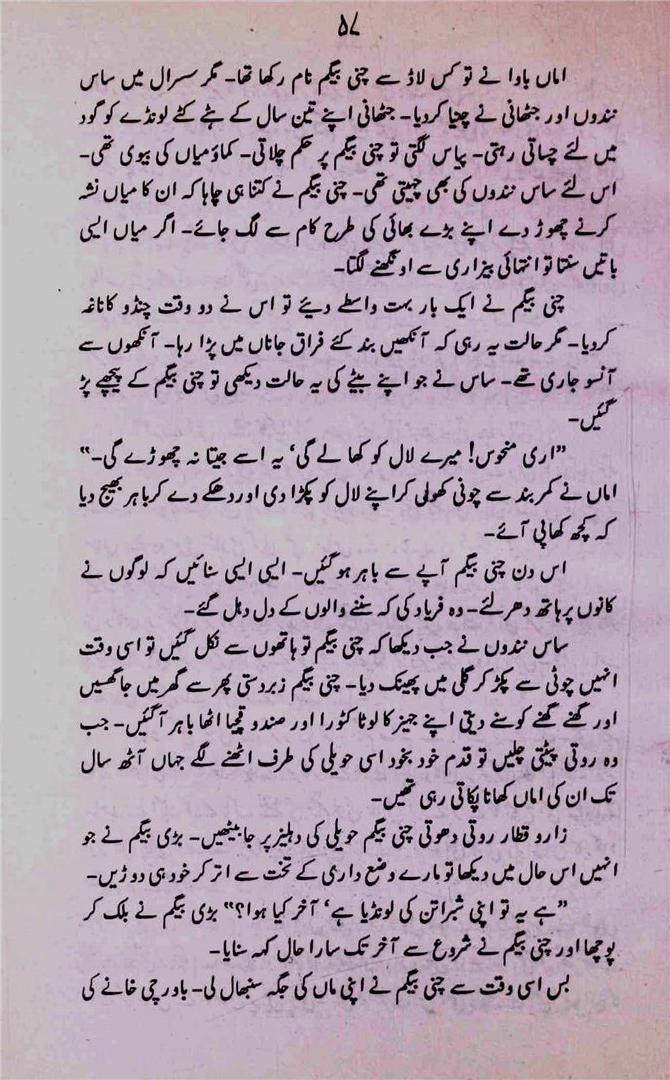 ۵۸
اماں باوا نے تو کس لاڈ سے چنی بیگم نام رکھا تھا۔ مگر سسرال میں ساس
نندوں اور جٹھانی نے چنیا کردیا۔ جٹھانی اپنے تین سال کے ہٹے کٹے لونڈے کو گود
میں لئے چساتی رہتی۔ پیاس لگتی تو چنی بیگم پر حکم چلاتی۔ کماؤ میاں کی بیوی تھی۔
اس لئے ساس نندوں کی بھی چہیتی تھی۔ چنی بیگم نے کتنا ہی چاہا کہ ان کا میاں نشہ
کرنے چھوڑ دے اپنے بڑے بھائی کی طرح کام سے لگ جائے۔ اگر میاں ایسی
باتیں سنتا تو انتہائی بیزاری سے اونگھنے لگتا۔
چنی بیگم نے ایک بار بہت واسطے دیئے تو اس نے دو وقت چنڈو کا ناغہ
کردیا۔ مگر حالت یہ رہی کہ آنکھیں بند کئے فراق جاناں میں پڑا رہا۔ آنکھوں سے
آنسو جاری تھے۔ ساس نے جو اپنے بیٹے کی یہ حالت دیکھی تو چنی بیگم کے پیچھے پڑ
گئیں۔
”اری منحوس! میرے لال کو کھا لے گی‘ یہ اسے جیتا نہ چھوڑے گی۔“
اماں نے کمربند سے چونی کھولی کر اپنے لال کو پکڑا دی اور دھکے دے کر باہر بھیج دیا
کہ کچھ کھا پی آئے۔
اس دن چنی بیگم آپے سے باہر ہو گئیں۔ ایسی ایسی سنائیں کہ لوگوں نے
کانوں پر ہاتھ دھر لئے۔ وہ فریاد کی کہ سننے والوں کے دل دہل گئے۔
ساس نندوں نے جب دیکھا کہ چنی بیگم تو ہاتھوں سے نکل گئیں تو اسی وقت
انہیں چوٹی سے پکڑ کر گلی میں پھینک دیا۔ چنی بیگم زبردستی پھر سے گھر میں جا گھسیں
اور گھنے گھنے کوسنے دیتی اپنے جہیز کا لوٹا کٹورا اور صندوقچیا اٹھا باہر آگئیں۔ جب
وہ روتی پیٹتی چلیں تو قدم خود بخود اسی حویلی کی طرف اٹھنے لگے جہاں آٹھ سال
تک ان کی اماں کھانا پکاتی رہی تھیں۔
زار و قطار روتی دھوتی چنی بیگم حویلی کی دہلیز پر جا بیٹھیں۔ بڑی بیگم نے جو
انہیں اس حال میں دیکھا تو مارے وضع داری کے تخت سے اتر کر خود ہی دوڑیں۔
”ہے یہ تو اپنی شبراتن کی لونڈیا ہے‘ آخر کیا ہوا؟“ بڑی بیگم نے بلک کر
پوچھا اور چنی بیگم نے شروع سے آخر تک سارا حال کہہ سنایا۔
بس اسی وقت سے چنی بیگم نے اپنی ماں کی جگہ سنبھال لی۔ باورچی خانے کی